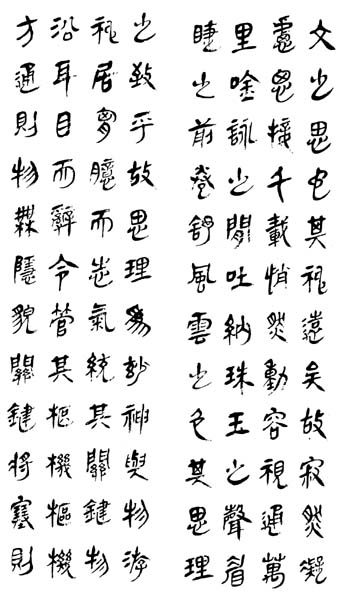 文之思也其神遠矣故寂然凝
慮思接千載悄然動容視通萬
里唫詠之間吐納珠玉之聲眉
睫之前卷舒風雲之色其思理
之致乎故思理爲玅神與物游
神居胸臆而志氣統其關鍵物
沿耳目而辭令管其樞機樞機
方通則物無隱貌關鍵將塞則